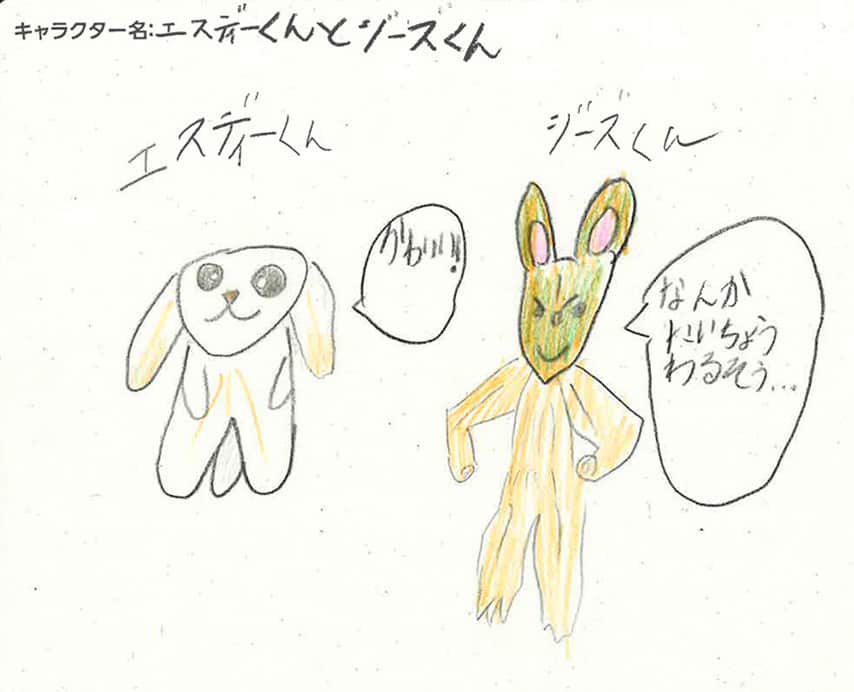 キャラクター名:エスディーくんとジーズくん
エスディーくん
ジーズくん
かわいい!
なんか
たいちょう
わるそう...